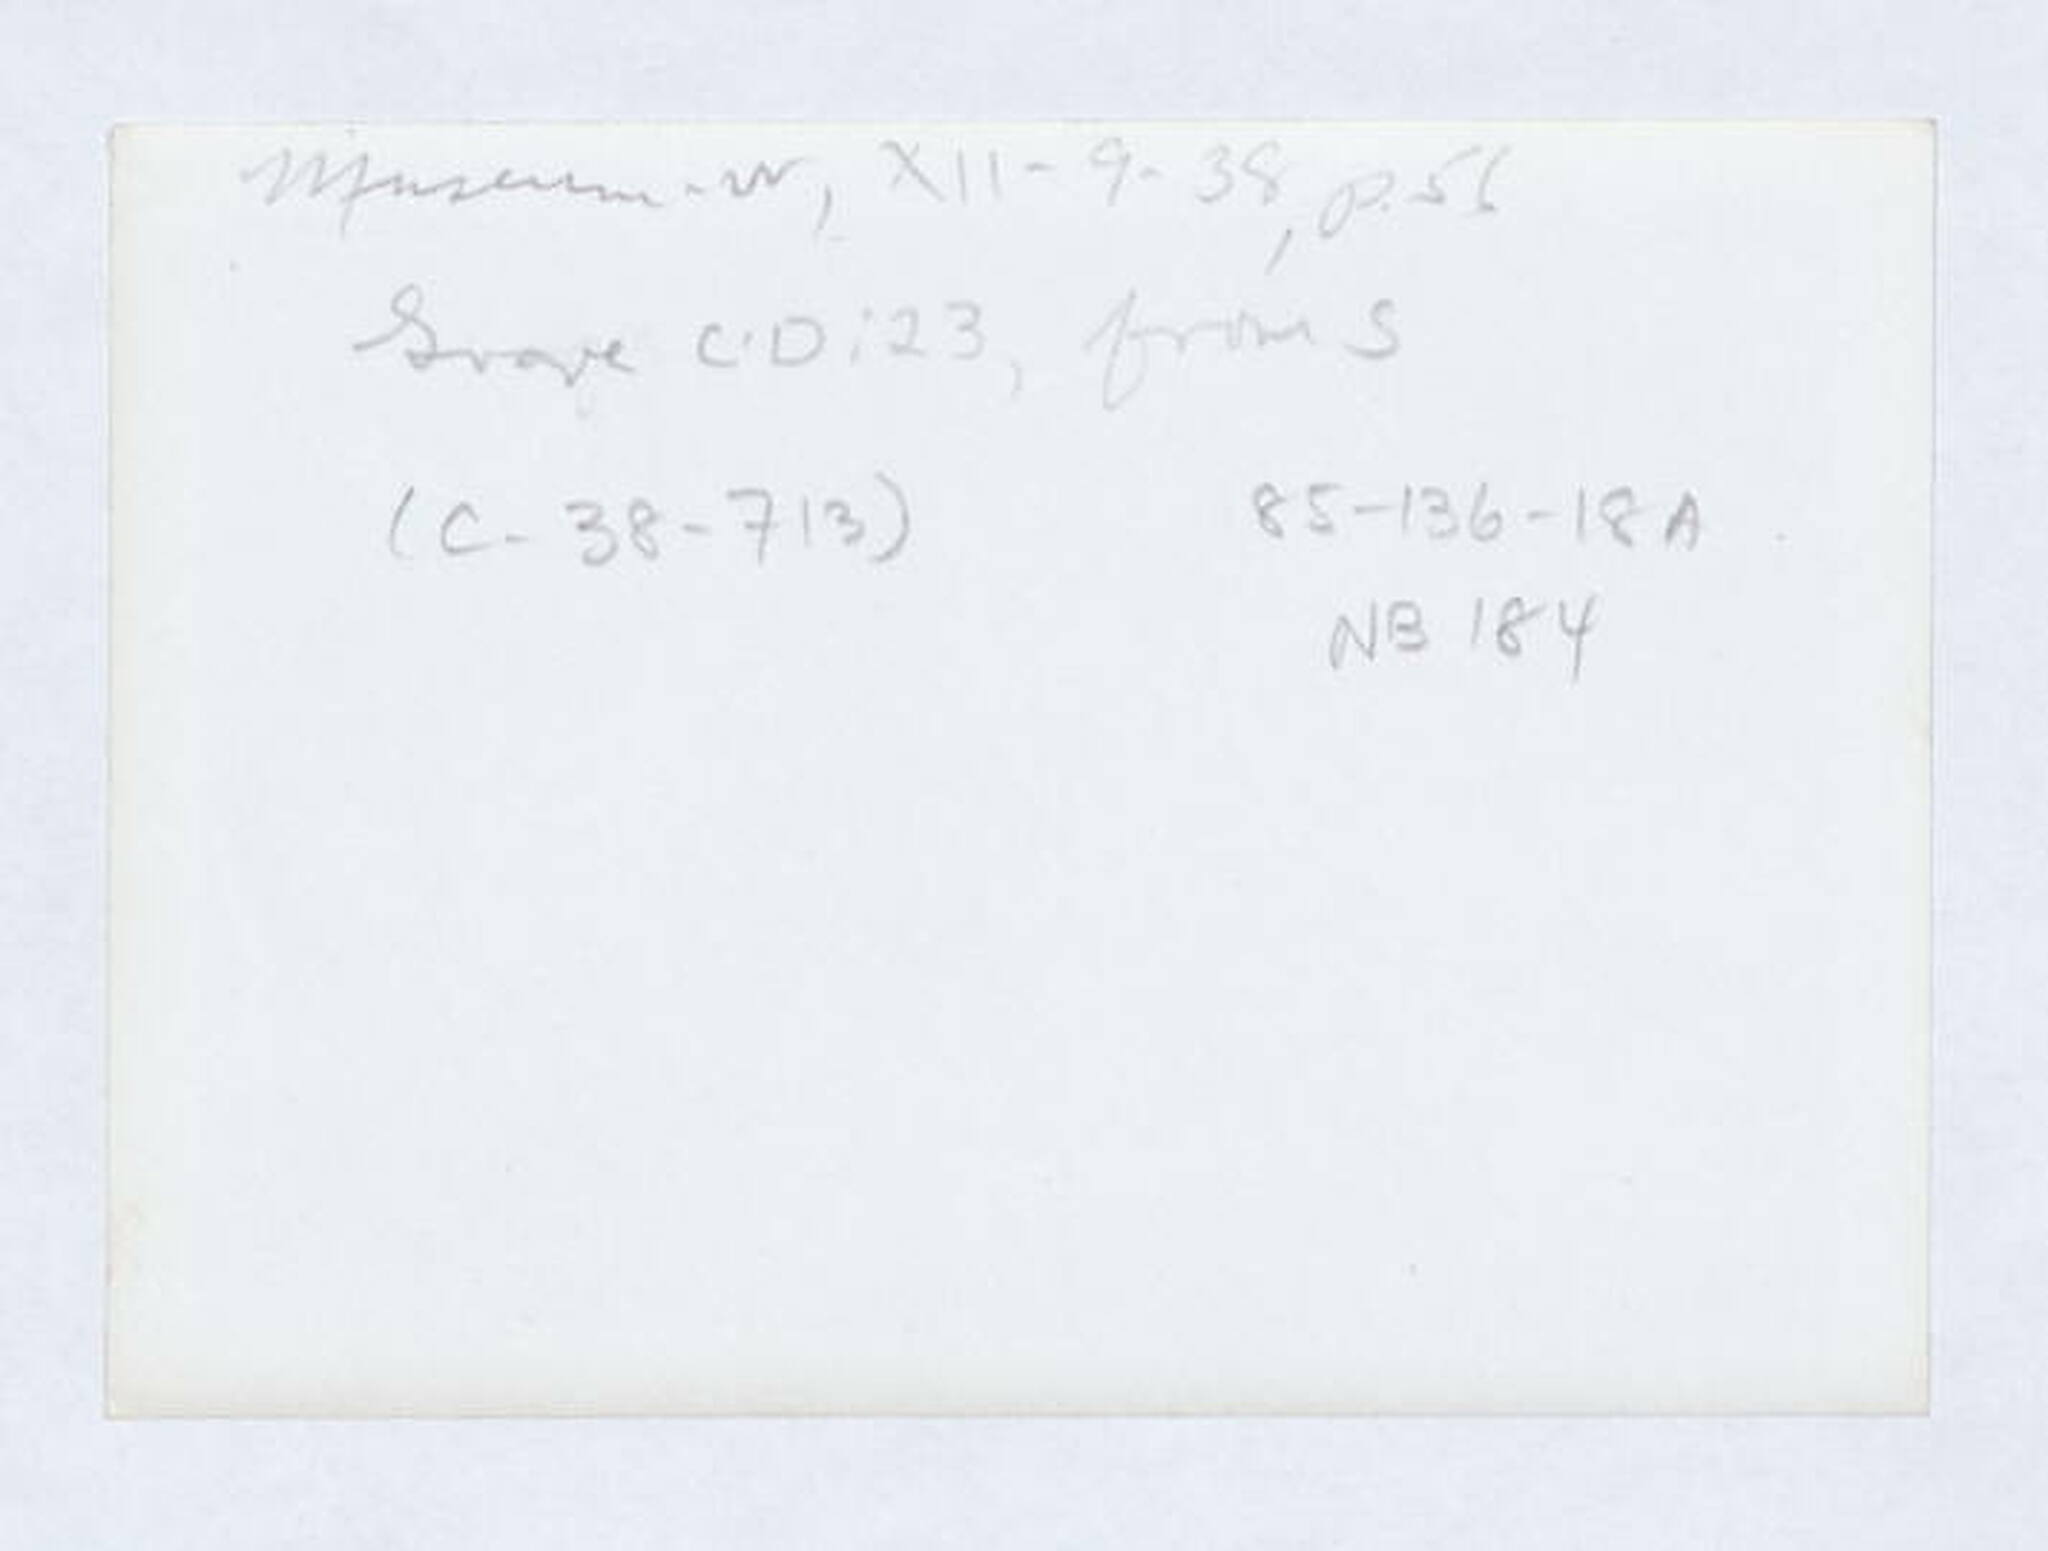 Museum-W, XII-9-38, p.56
Grave C:D:23, from S
(C-38-713) 85-136-18A
NB 184